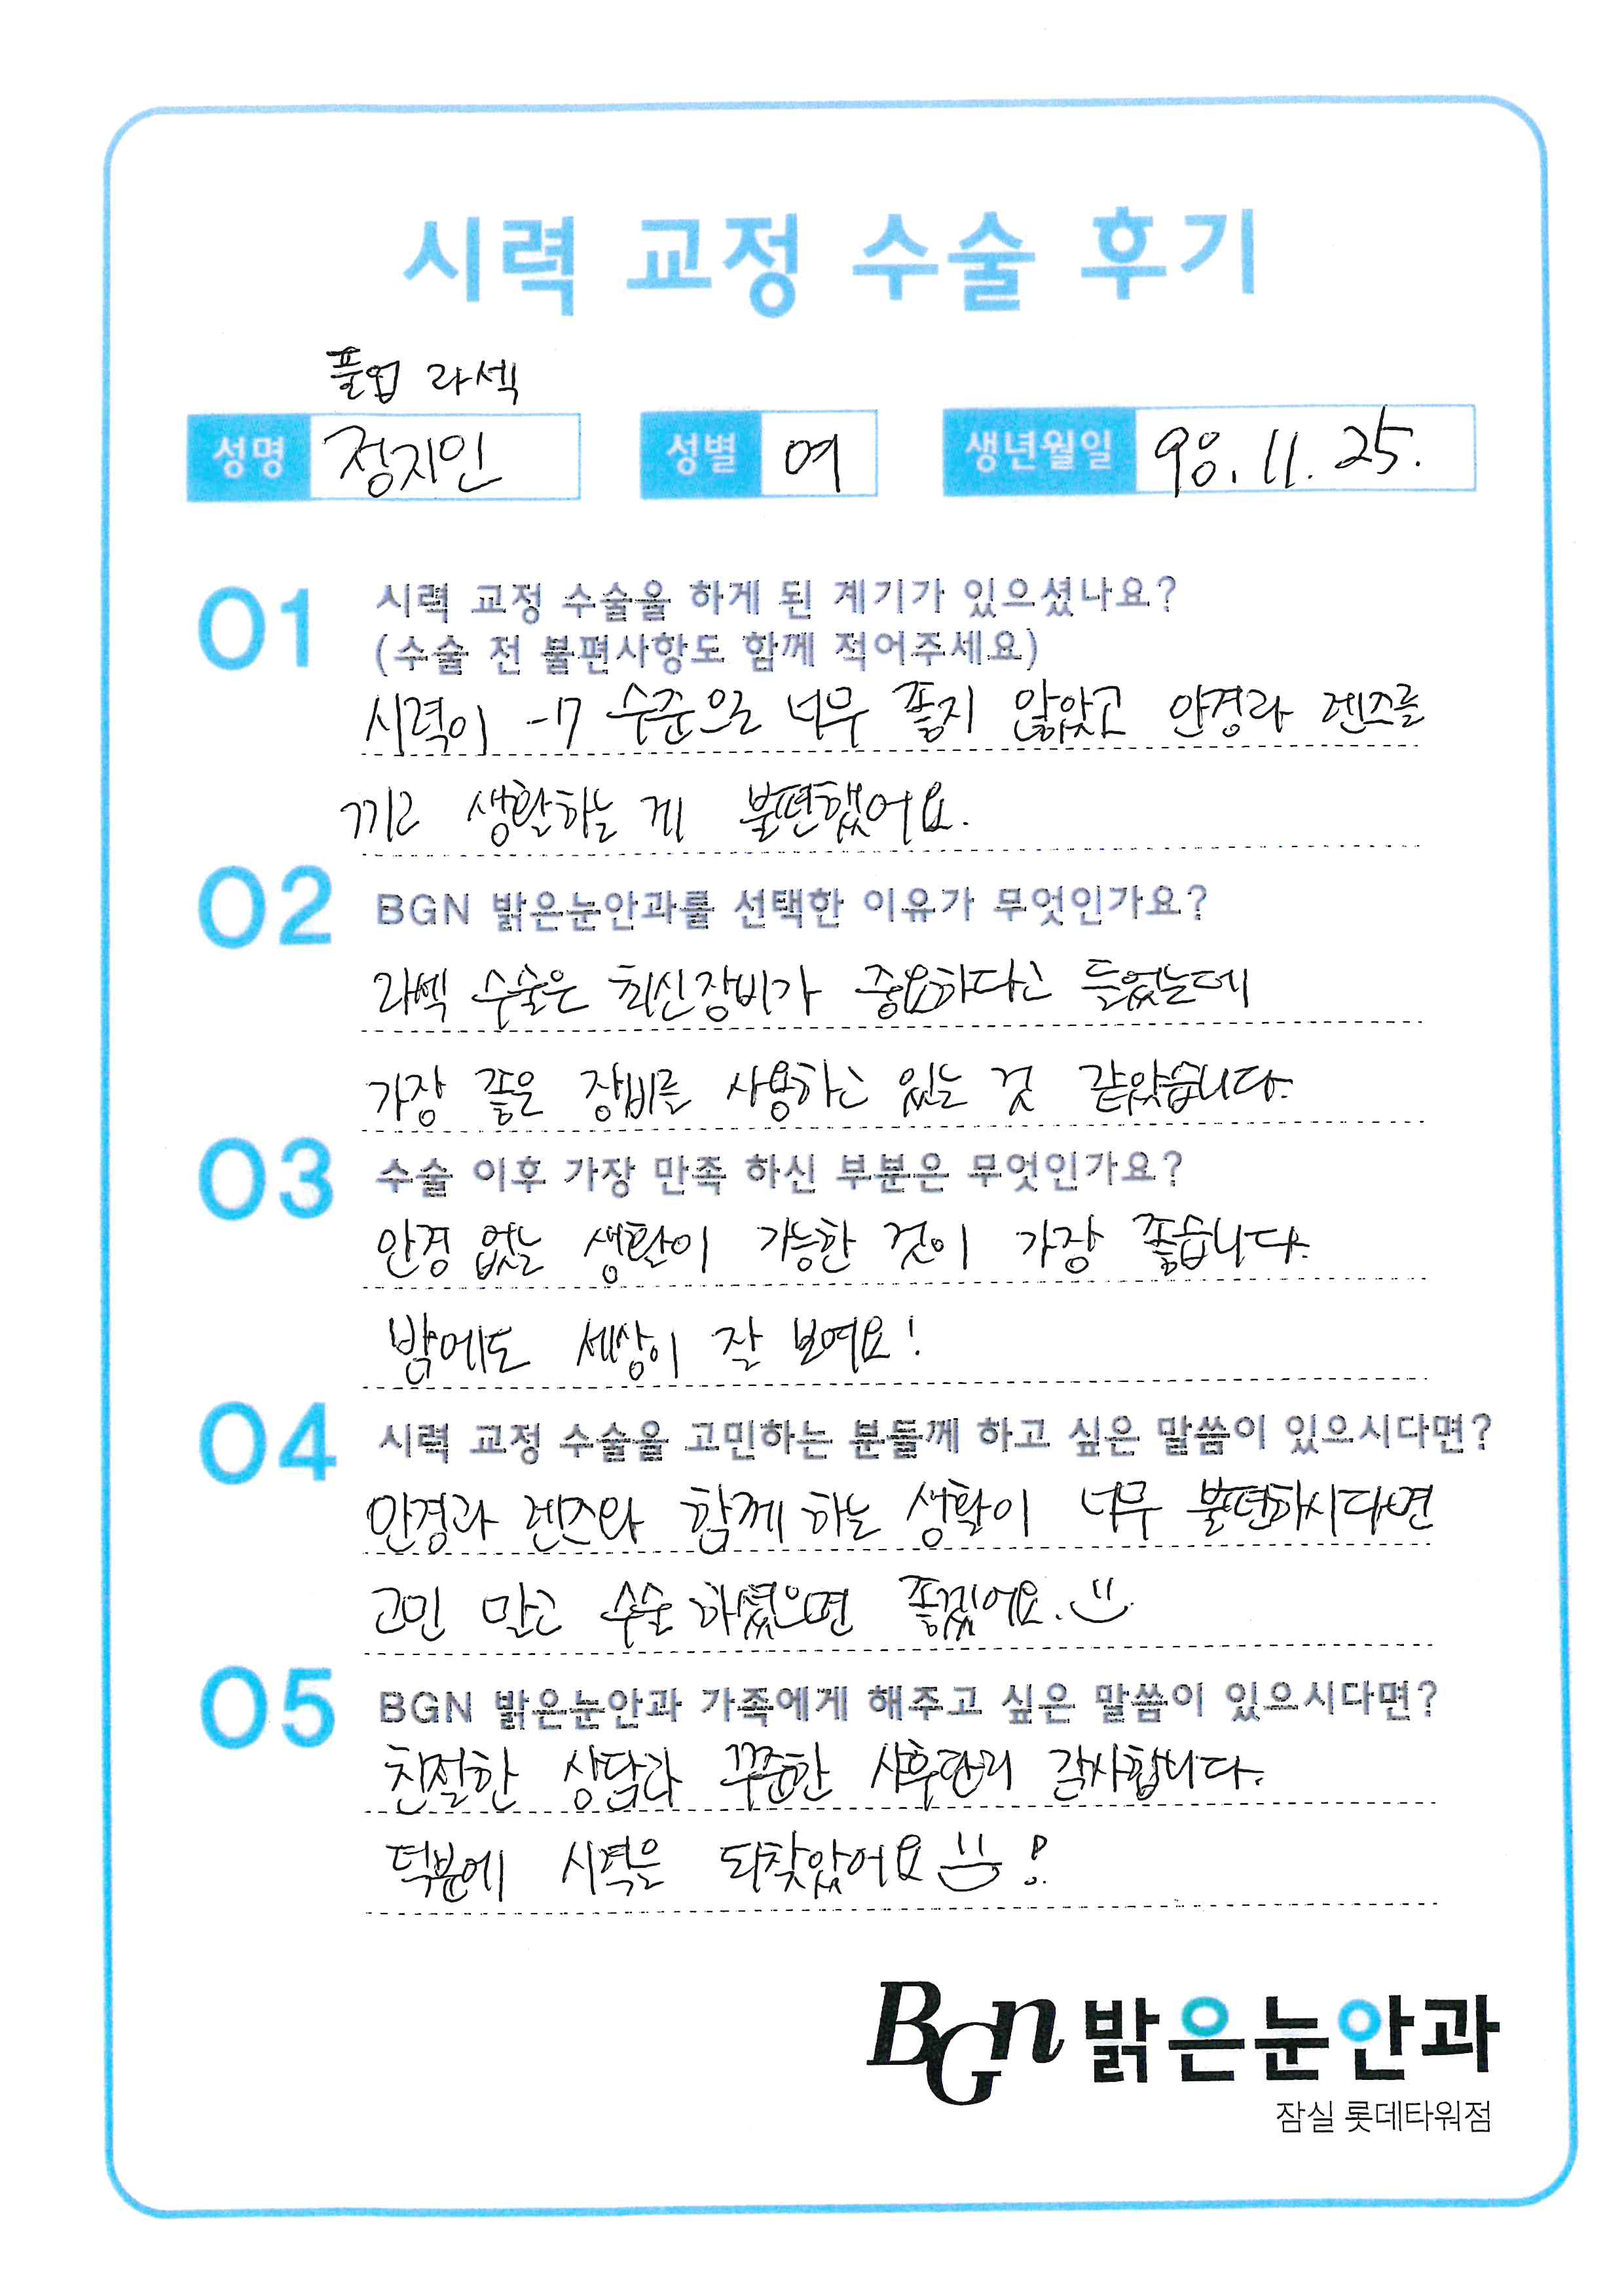 시력 교정 수술 후기
풀업 라섹
성명 정지인 성별 여 생년월일 98. 11. 25.
01 시력 교정 수술을 하게 된 계기가 있으셨나요?
(수술 전 불편사항도 함께 적어주세요)
시력이 -7 수준으로 너무 좋지 않았고 안경과 렌즈를
끼고 생활하는 게 불편했어요.
02 BGN 밝은눈안과를 선택한 이유가 무엇인가요?
라섹 수술은 최신장비가 중요하다고 들었는데
가장 좋은 장비를 사용하고 있는 것 같았습니다.
03 수술 이후 가장 만족 하신 부분은 무엇인가요?
안경 없는 생활이 가능한 것이 가장 좋습니다.
밤에도 세상이 잘 보여요!
04 시력 교정 수술을 고민하는 분들께 하고 싶은 말씀이 있으시다면?
안경과 렌즈와 함께 하는 생활이 너무 불편하시다면
고민 말고 수술 하셨으면 좋겠어요.
05 BGN 밝은눈안과 가족에게 해주고 싶은 말씀이 있으시다면?
친절한 상담과 꾸준한 사후관리 감사합니다.
덕분에 시력을 되찾았어요 !
BGN 밝은눈안과
잠실 롯데타워점